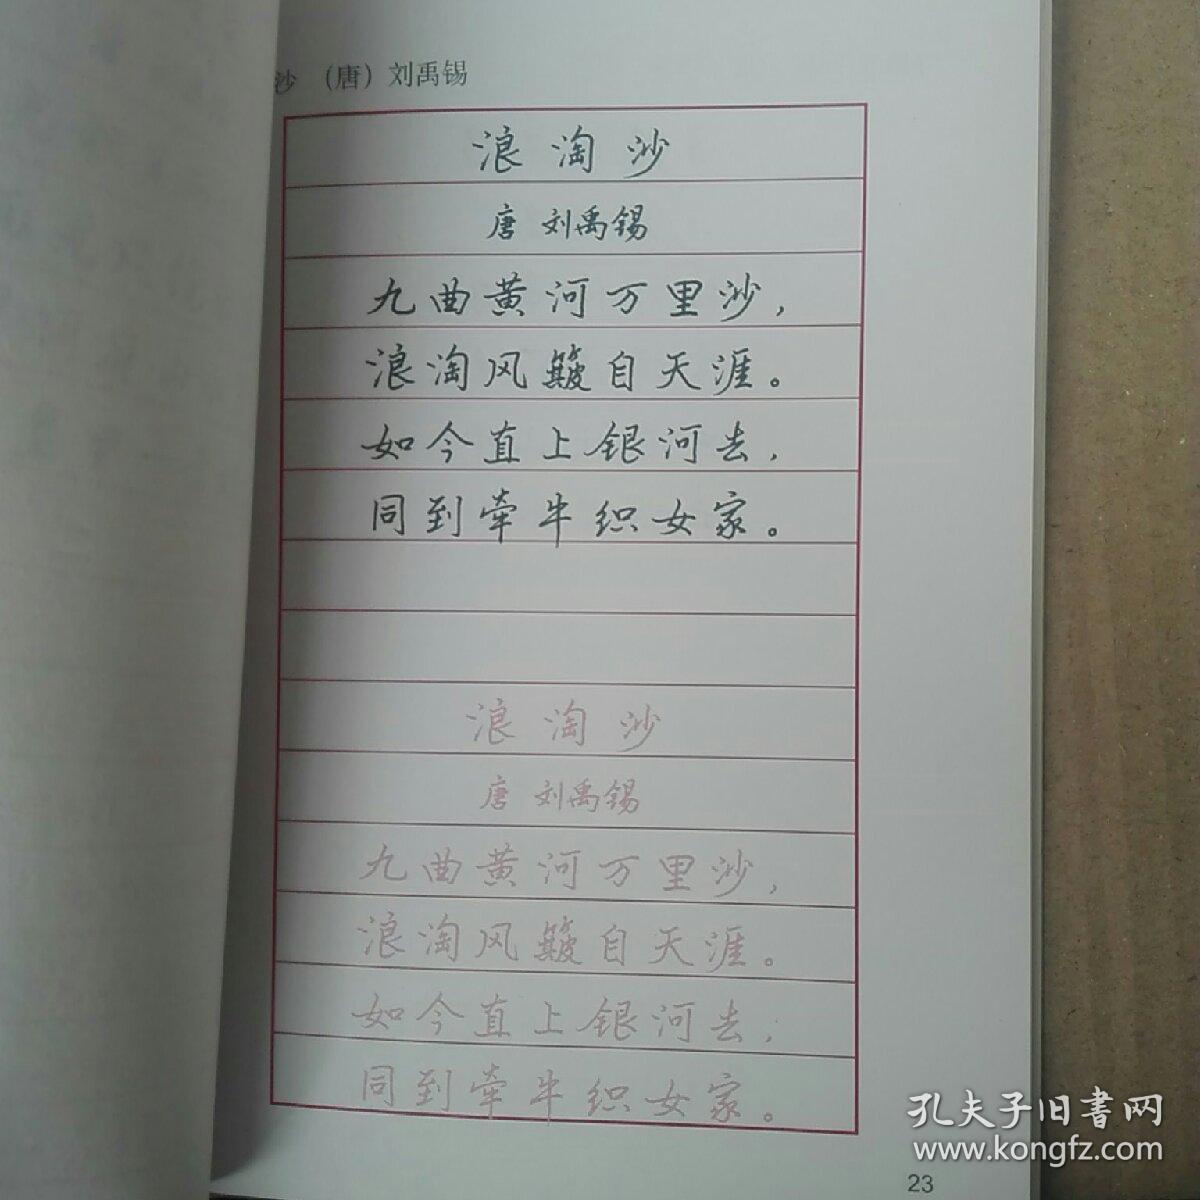 沙 （唐）刘禹锡
浪淘沙
唐 刘禹锡
九曲黄河万里沙，
浪淘风簸自天涯。
如今直上银河去，
同到牵牛织女家。
浪淘沙
唐 刘禹锡
九曲黄河万里沙，
浪淘风簸自天涯。
如今直上银河去，
同到牵牛织女家。
23
孔夫子旧書网
www.kongfz.com